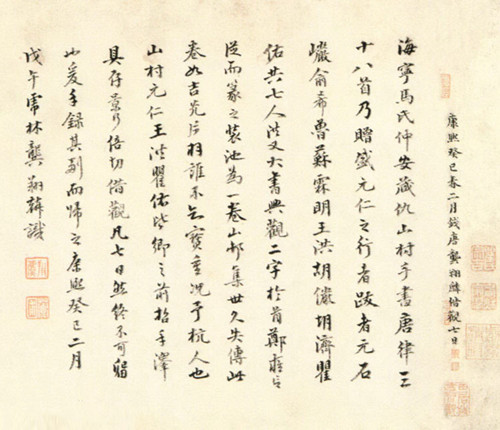 康熙癸巳春二月錢唐龔翔麟借觀七日
海寧馬氏仲安藏仇山村手書唐律三
十八首乃贈盛元仁之行者跋者元石
巖俞希魯蘇霖明王洪胡儼胡濟瞿
佑共七人洪又大書興觀二字於首鄭雍言
從而篆之裝池為一卷山邨集世久失傳此
卷如吉光片羽誰不知寶重况予杭人也
山村元仁王洪瞿佑皆鄉之前哲手澤
具存景行倍切借觀凡七日然終不可留
也爰手錄其副而歸之康熙癸巳二月
戊午林龔翔麟識